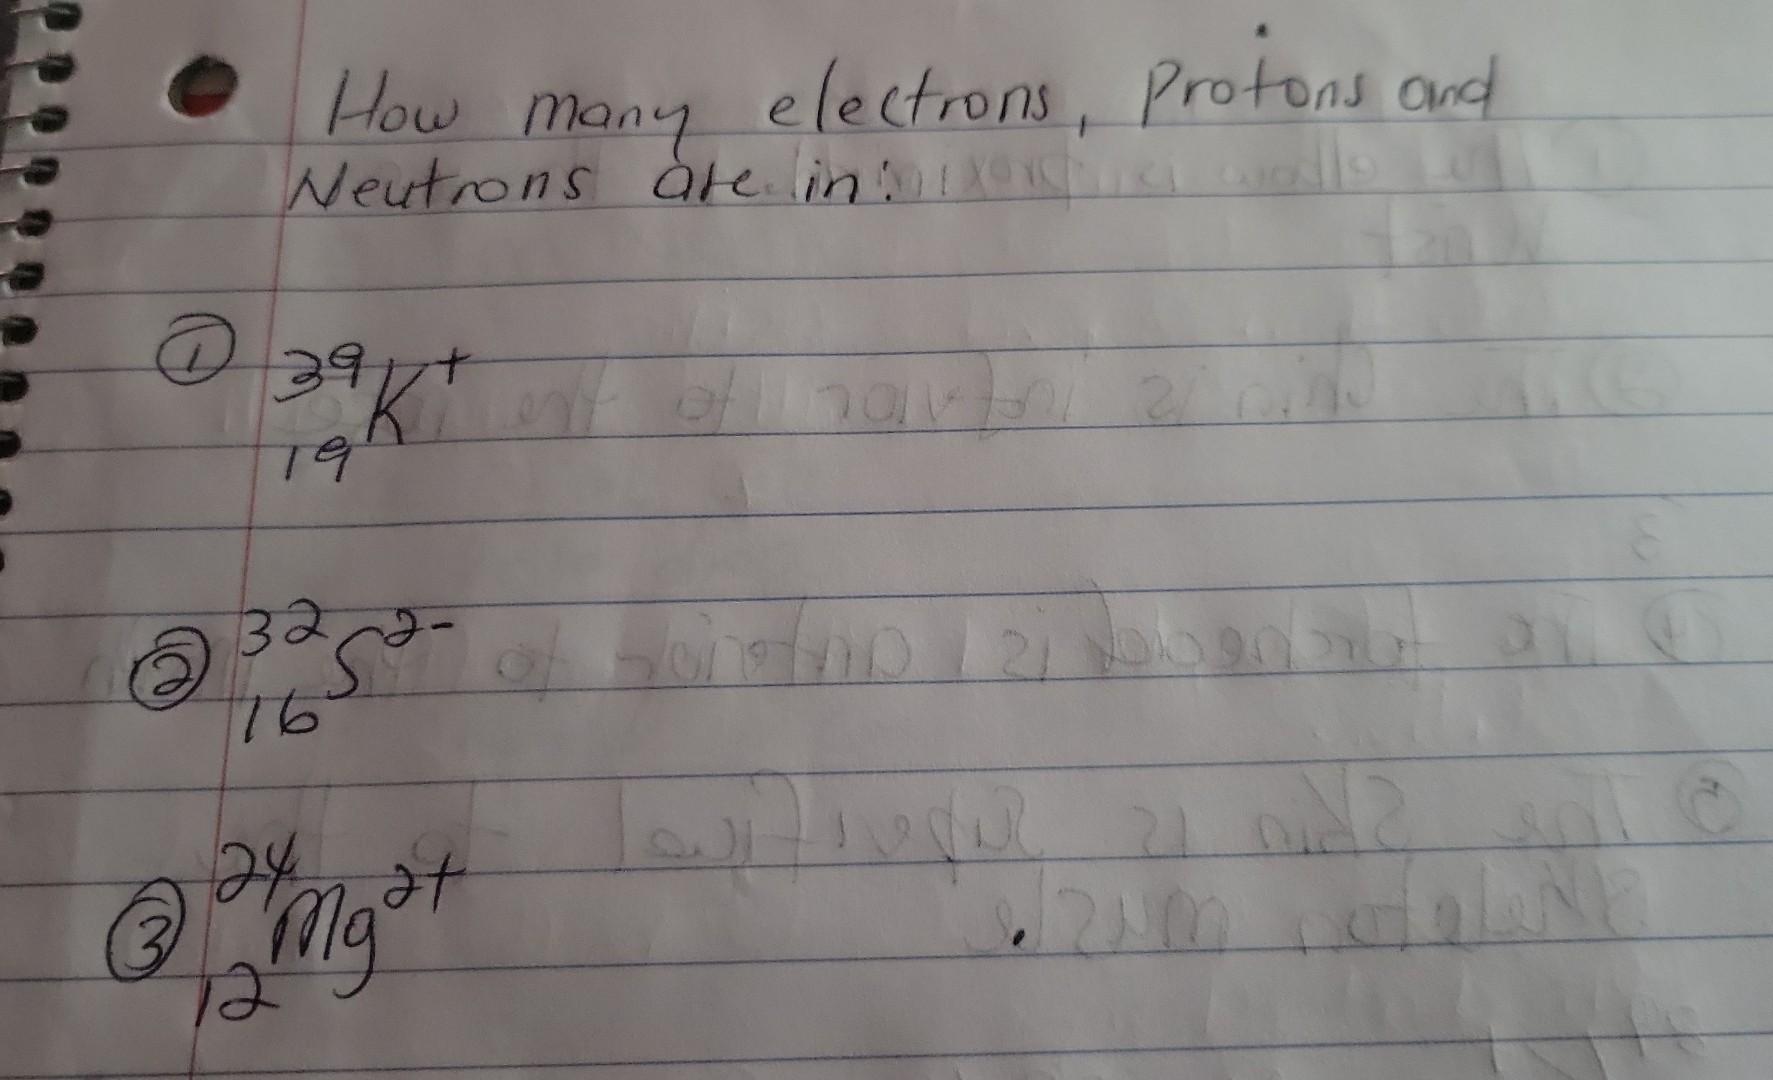 How many electrons, Protons and
Neutrons are in:
① ³⁹₁₉K⁺
② ³²₁₆S²⁻
③ ²⁴₁₂Mg²⁺